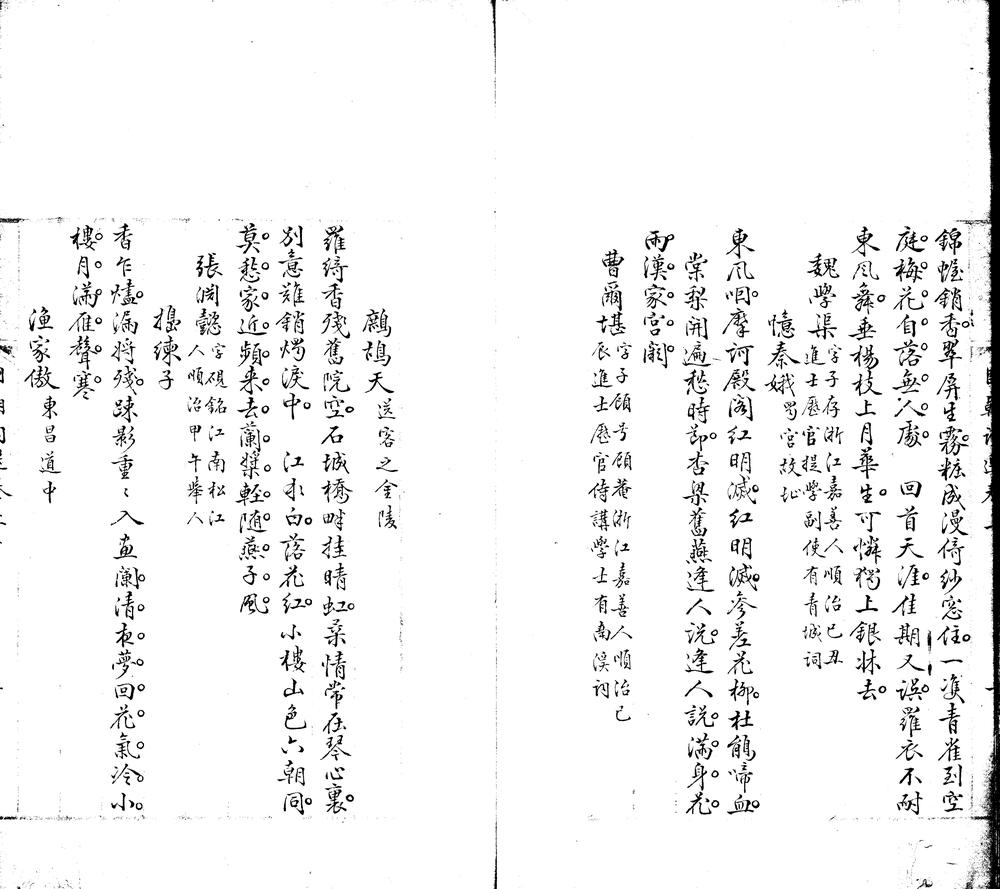 錦幄銷香翠屏生霧粧成漫倚紗窓住一雙青雀到空
庭梅花自落無人處　回首天涯佳期又誤羅衣不耐
東風舞垂楊枝上月華生可憐獨上銀牀去
魏學渠字子存浙江嘉善人順治己丑
進士歷官提學副使有青城詞
憶秦娥蜀宮故址
東風咽摩訶殿閣紅明滅紅明滅參差花柳杜鵑啼血
棠梨開遍愁時節杏梁舊燕逢人説逢人説滿身花
雨漢家宮闕
曹爾堪字子顧号顧菴浙江嘉善人順治己
辰進士歷官侍講學士有南溪詞
鷓鴣天送客之金陵
羅綺香殘舊院空石城橋畔挂晴虹柔情常在琴心裏
别意難銷燭淚中　江水白落花紅小樓山色六朝同
莫愁家近頻来去蘭槳輕随燕子風
張淵懿字硯銘江南松江
人順治甲午舉人
搗練子
香乍燼漏将殘踈影重〻入畫闌清夜夢回花氣冷小
樓月滿雁聲寒
漁家傲東昌道中